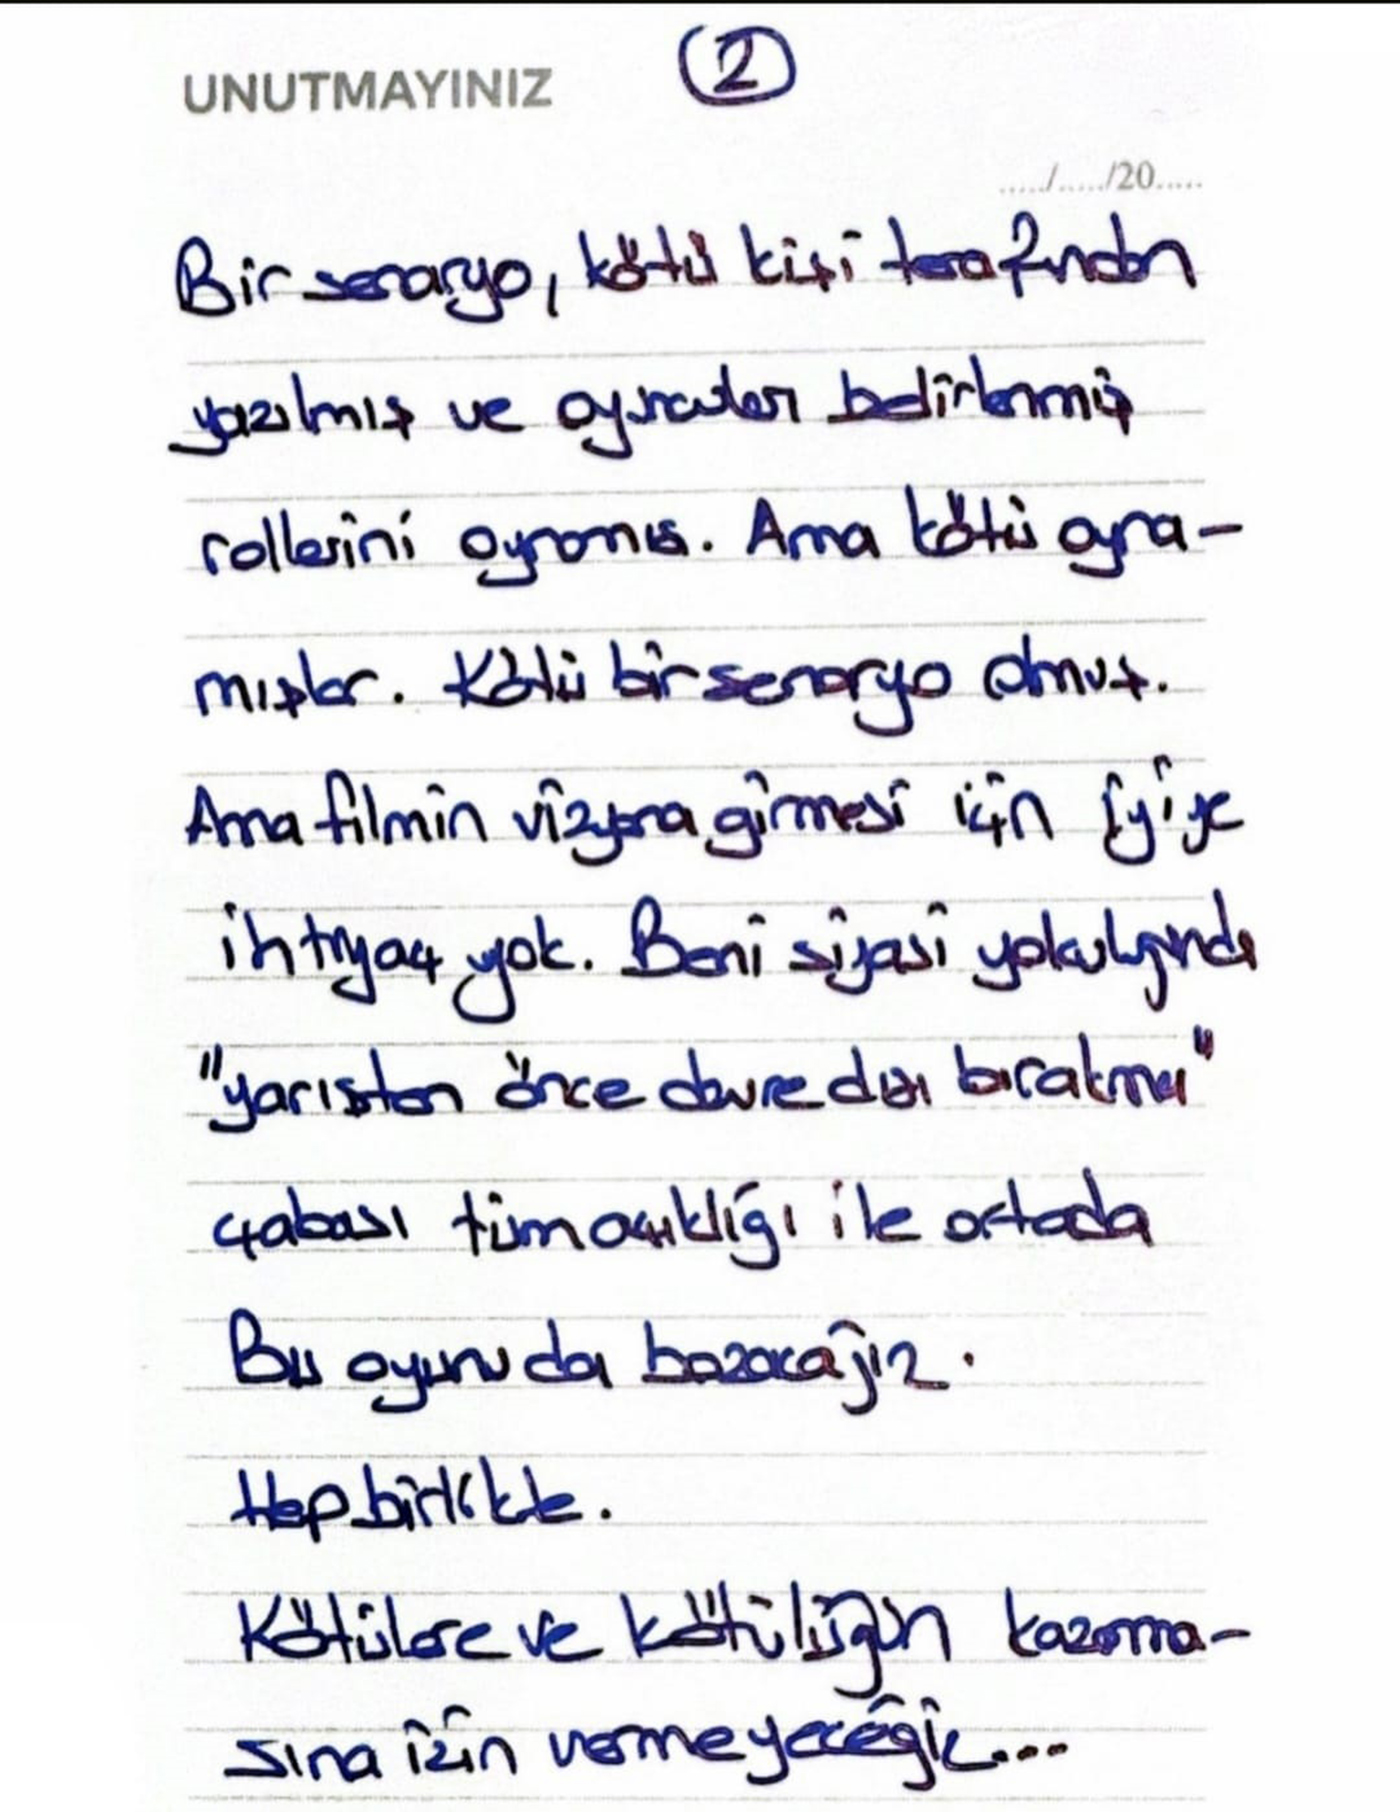 UNUTMAYINIZ 2
...../...../20.....
Bir senaryo, kötü kişi tarafından
yazılmış ve oyuncuları belirlenmiş
rollerini oynamış. Ama kötü oyna-
mışlar. Kötü bir senaryo olmuş.
Ama filmin vizyona girmesi için iyiye
ihtiyaç yok. Beni siyasi yolculuğunda
"yarıştan önce devre dışı bırakma"
çabası tüm açıklığı ile ortada
Bu oyunu da bozacağız.
Hep birlikte.
Kötülere ve kötülüğün kazanma-
sına izin vermeyeceğiz...